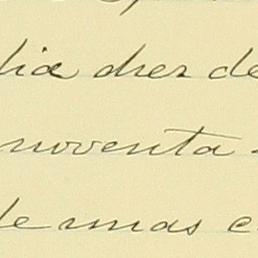 dia diez de
noventa
de unas c